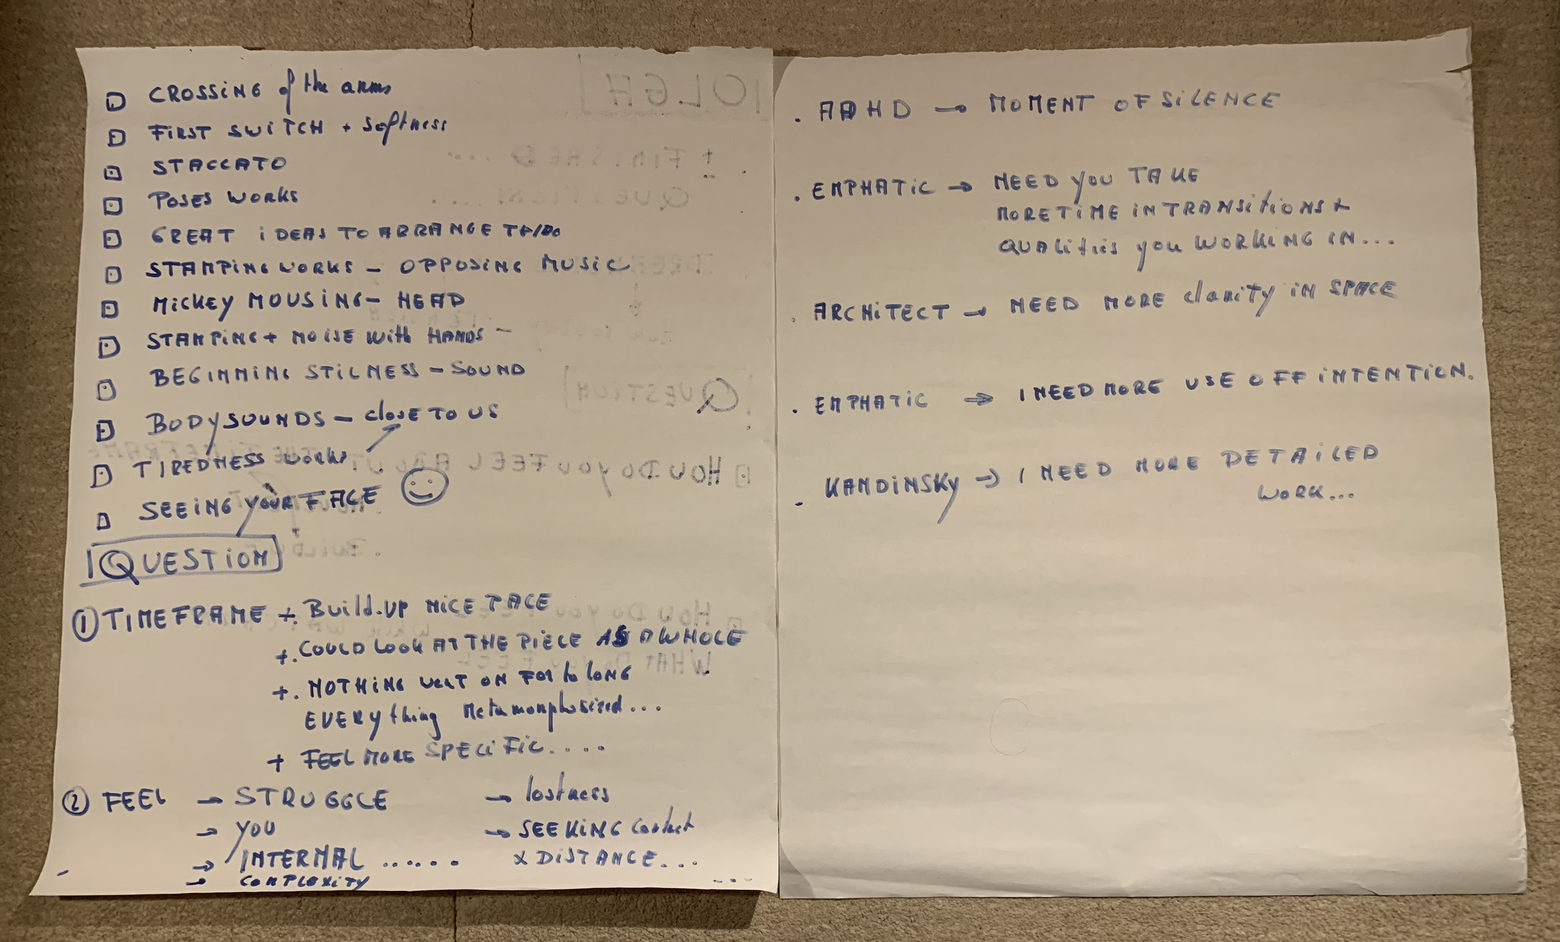 CROSSING of the arms
FIRST SWITCH + Softness
STACCATO
POSES WORKS
GREAT iDEAS TO ARRANGE
STAMPING WORKS - OPPOSING MUSIC
MICKEY MOUSING - HEAD
STAMPING + NOISE With HANDS -
BEGINNING STILNESS - SOUND
BODYSOUNDS - close TO US
TIREDNESS works
SEEING YOUR FACE
QUESTION
① TIMEFRAME + Build-UP NICE PACE
+. COULD LOOK AT THE PIECE AS A WHOLE
+. NOTHING WENT ON FOR to LONG
EVERYthing Metamorphosized...
+ FEEL MORE SPECIFIC....
② FEEL → STRUGGLE → lostness
→ YOU → SEEKING Contact
→ INTERNAL ...... & DISTANCE...
→ COMPLEXITY ...
. ADHD → MOMENT OF SILENCE
. EMPHATIC → NEED YOU TAKE
MORE TIME IN TRANSITIONS &
QUALITIES YOU WORKING IN...
. ARCHITECT → NEED MORE clarity IN SPACE
. EMPHATIC → I NEED MORE USE OFF INTENTION.
. KANDINSKY → I NEED MORE DETAILED
WORK...